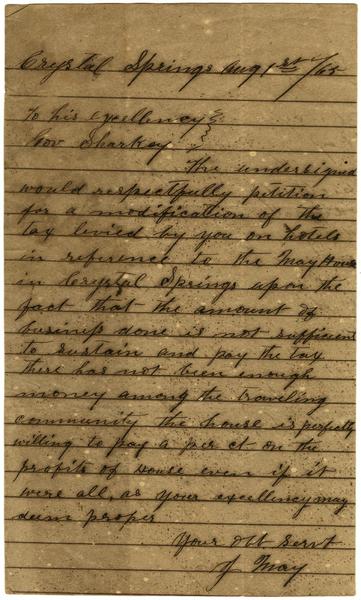 Crystal Springs Aug 1st /65
To his excellency
Gov Sharkey
The undersigned
would respectfully petition
for a modification of the
tax levied by you on hotels
in reference to the May House
in Crystal Springs upon the
fact that the amount of
business done is not sufficient
to sustain and pay the tax
there has not been enough
money among the traveling
community the house is perfectly
willing to pay a per ct on the
profits of House even if it
were all, as your excellency may
deem proper
Your Obt Servt
J May